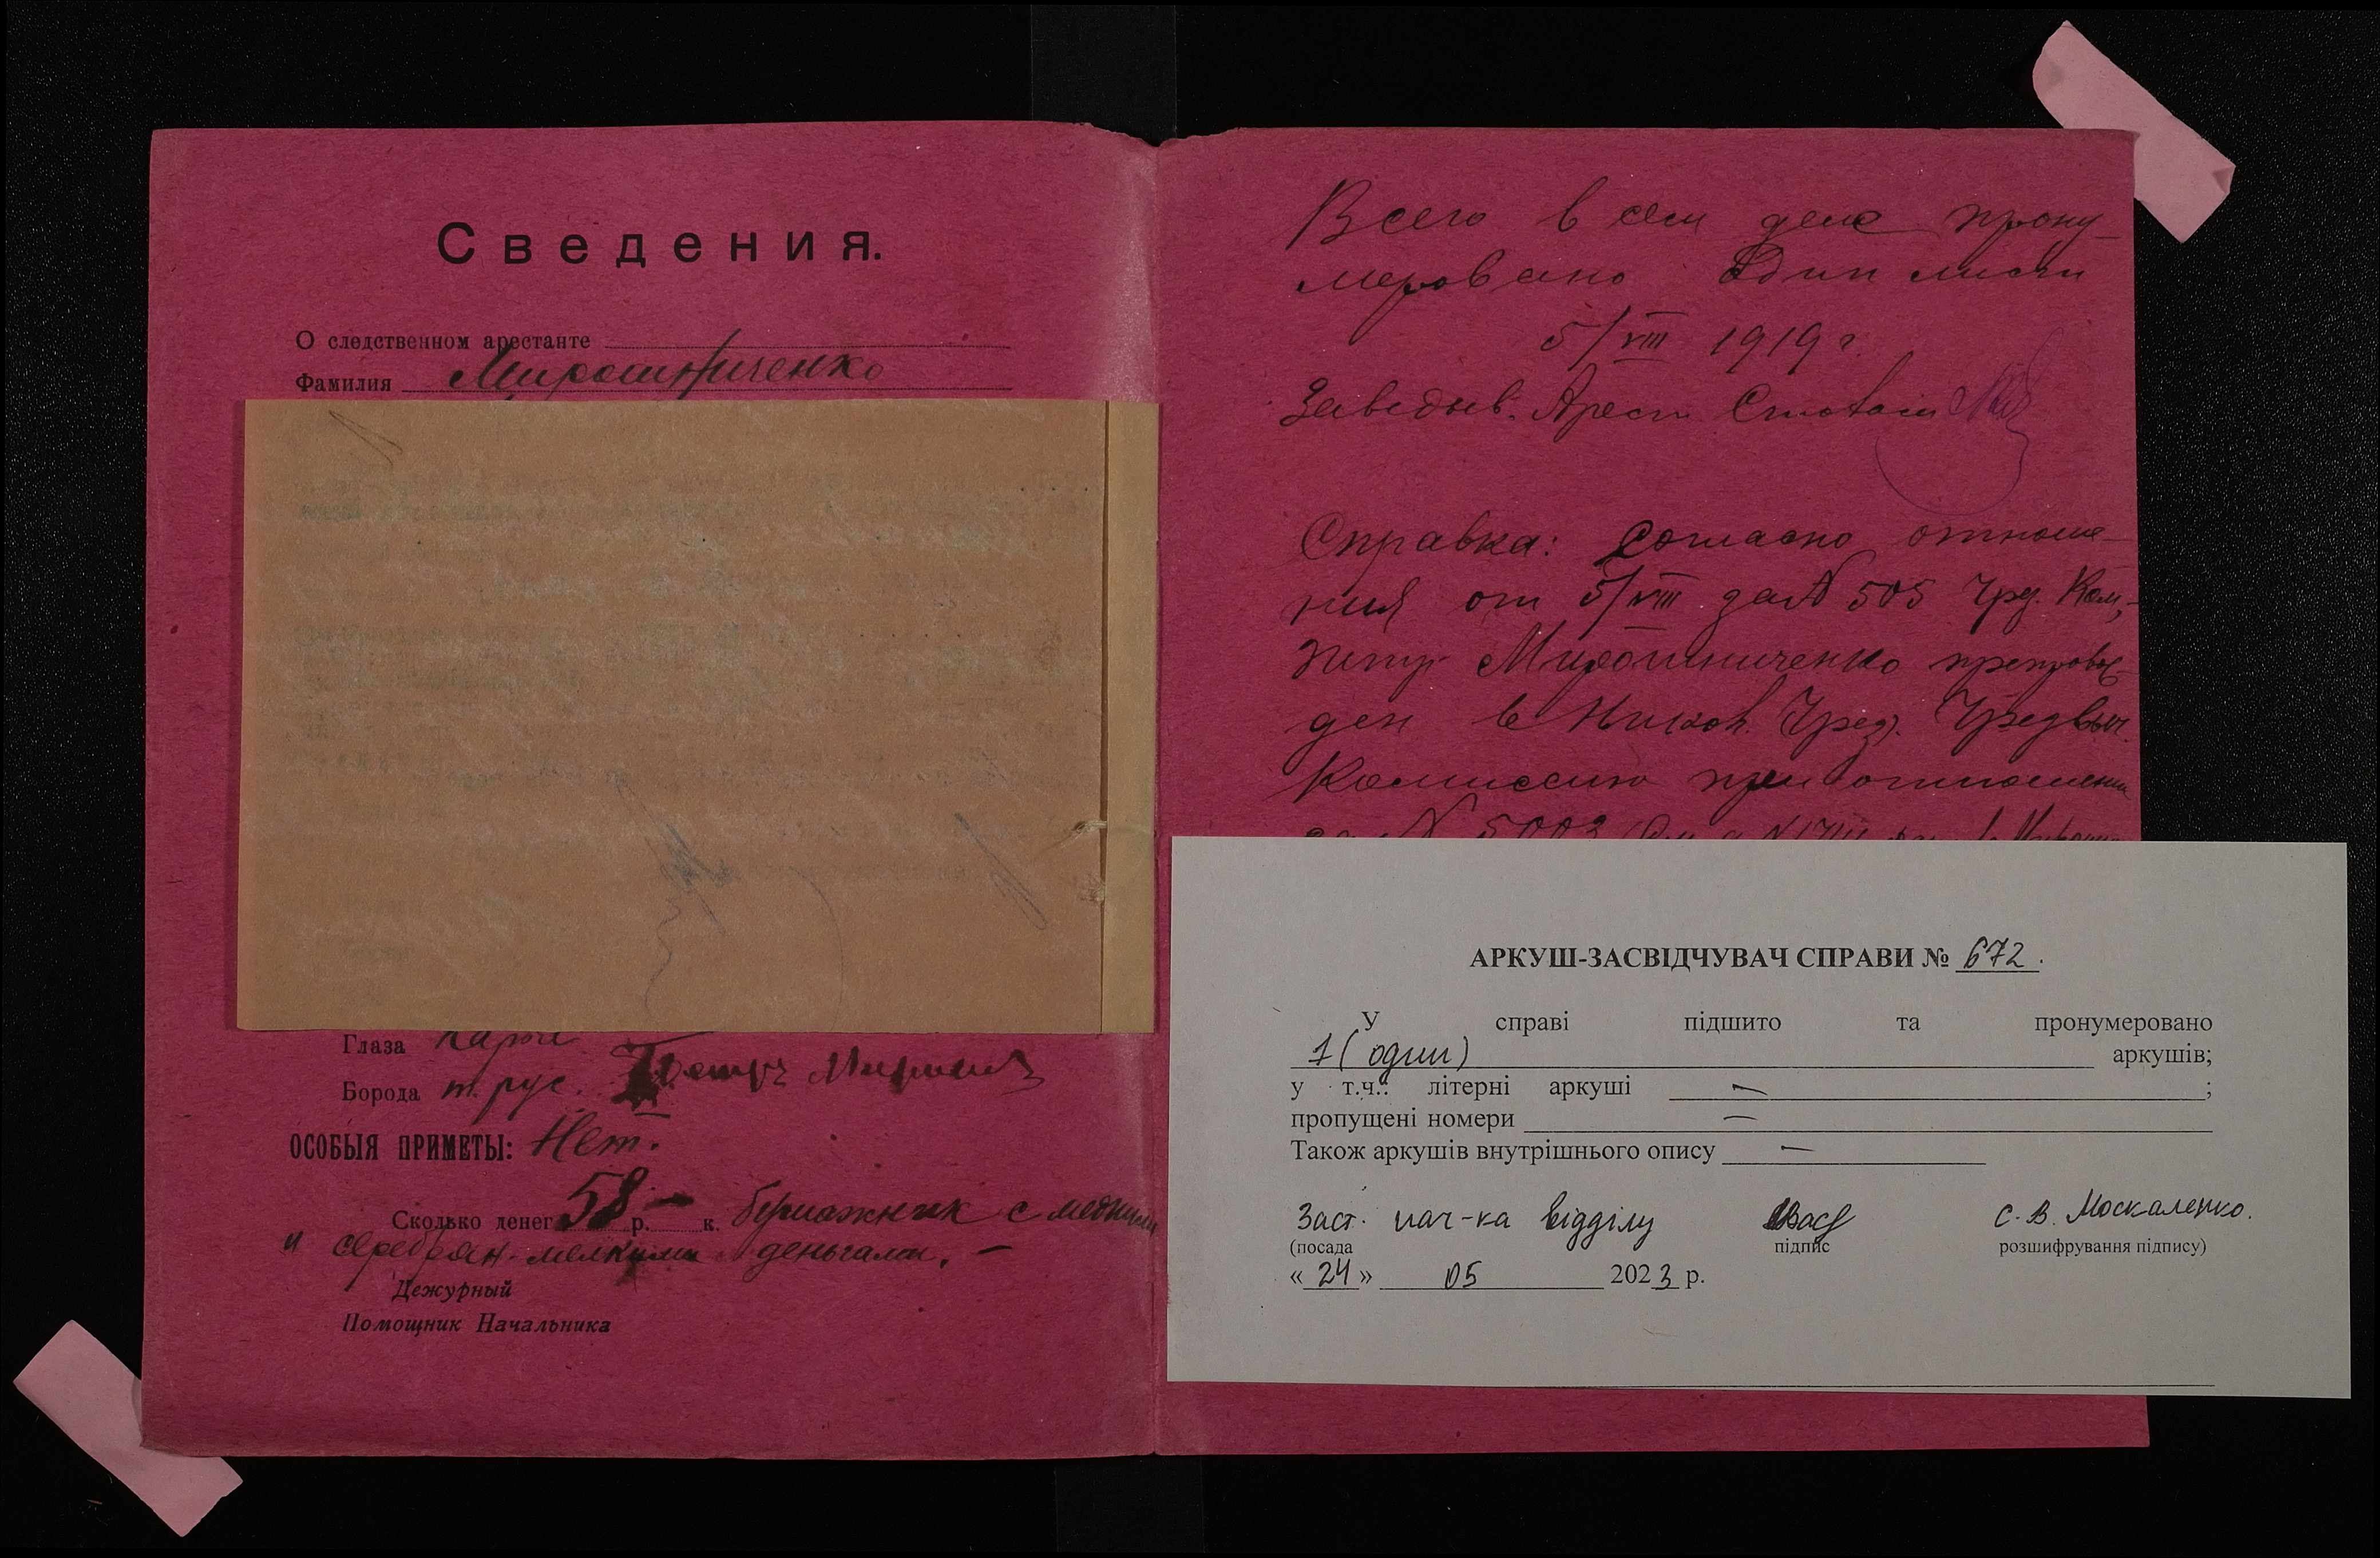 Сведения.
О следственном арестанте
Фамилия Мирошниченко
Глаза карие
Борода т. рус. Петръ Мирошн
ОСОБЫЯ ПРИМЕТЫ: Нет.
Сколько денег 58 р. – к. бумажник с медными
и серебрян. мелкими деньгами. –
Дежурный
Помощник Начальника
Всего в сем деле прону-
меровано один лист
5/VIII 1919 г.
Заведыв. Арест. Столом
Справка: согласно отноше-
ния от 5/VIII за № 505 Чрез. Ком.,
Петр Мирошниченко препровож-
ден в Никол. Чрезвыч.
Комиссию при отношении
за № 5003
АРКУШ-ЗАСВІДЧУВАЧ СПРАВИ № 672.
У справі підшито та пронумеровано
1 (один) аркушів;
у т.ч.: літерні аркуші – ;
пропущені номери –
Також аркушів внутрішнього опису –
Заст. нач-ка відділу С. В. Москаленко.
(посада підпис розшифрування підпису)
« 24 » 05 2023 р.